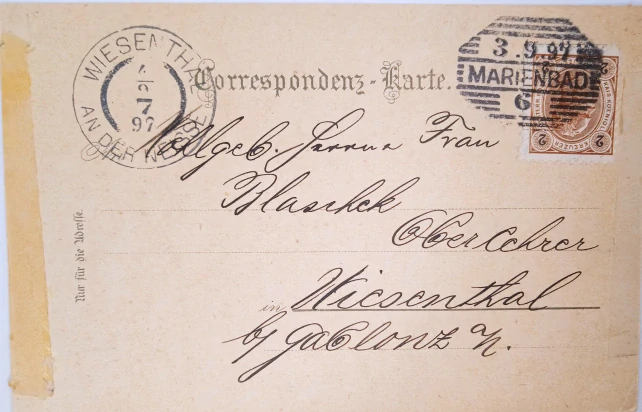 WIESENTHAL
AN DER NEISSE
4/9
7
97
Correspondenz-Karte.
3 9 97
MARIENBAD
6
2 KREUZER 2
Wolgeb. Herrn u Frau
Blaschek
Oberlehrer
in Wiesenthal
b/ Gablonz N.
Nur für die Adresse.